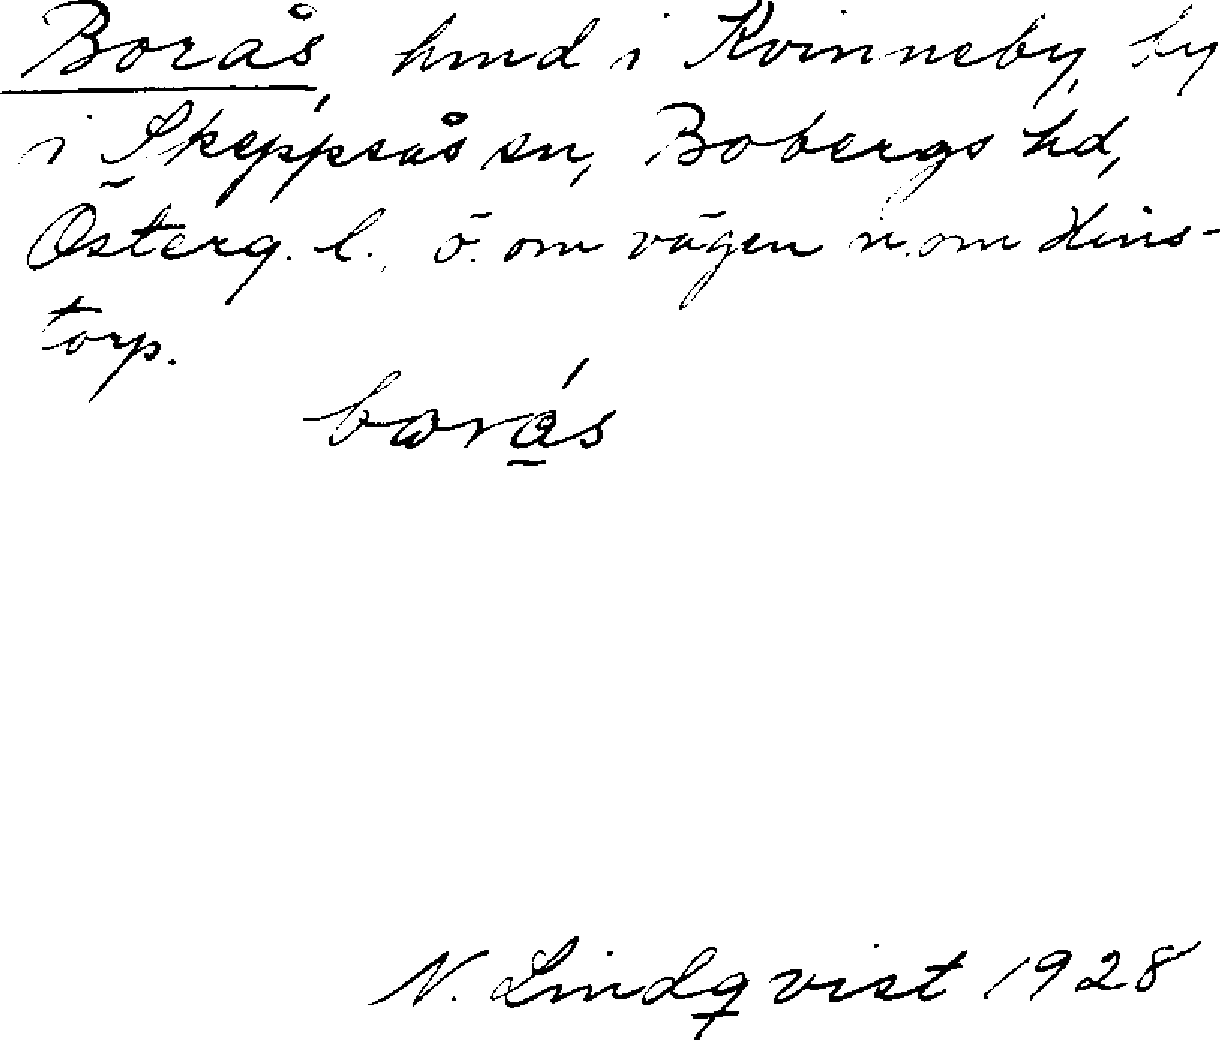 Borås, hmd i Kvinneby, by
i Skeppsås sn, Bobergs hd,
Österg. l., ö. om vägen n. om Hins-
torp.
N. Lindqvist 1928